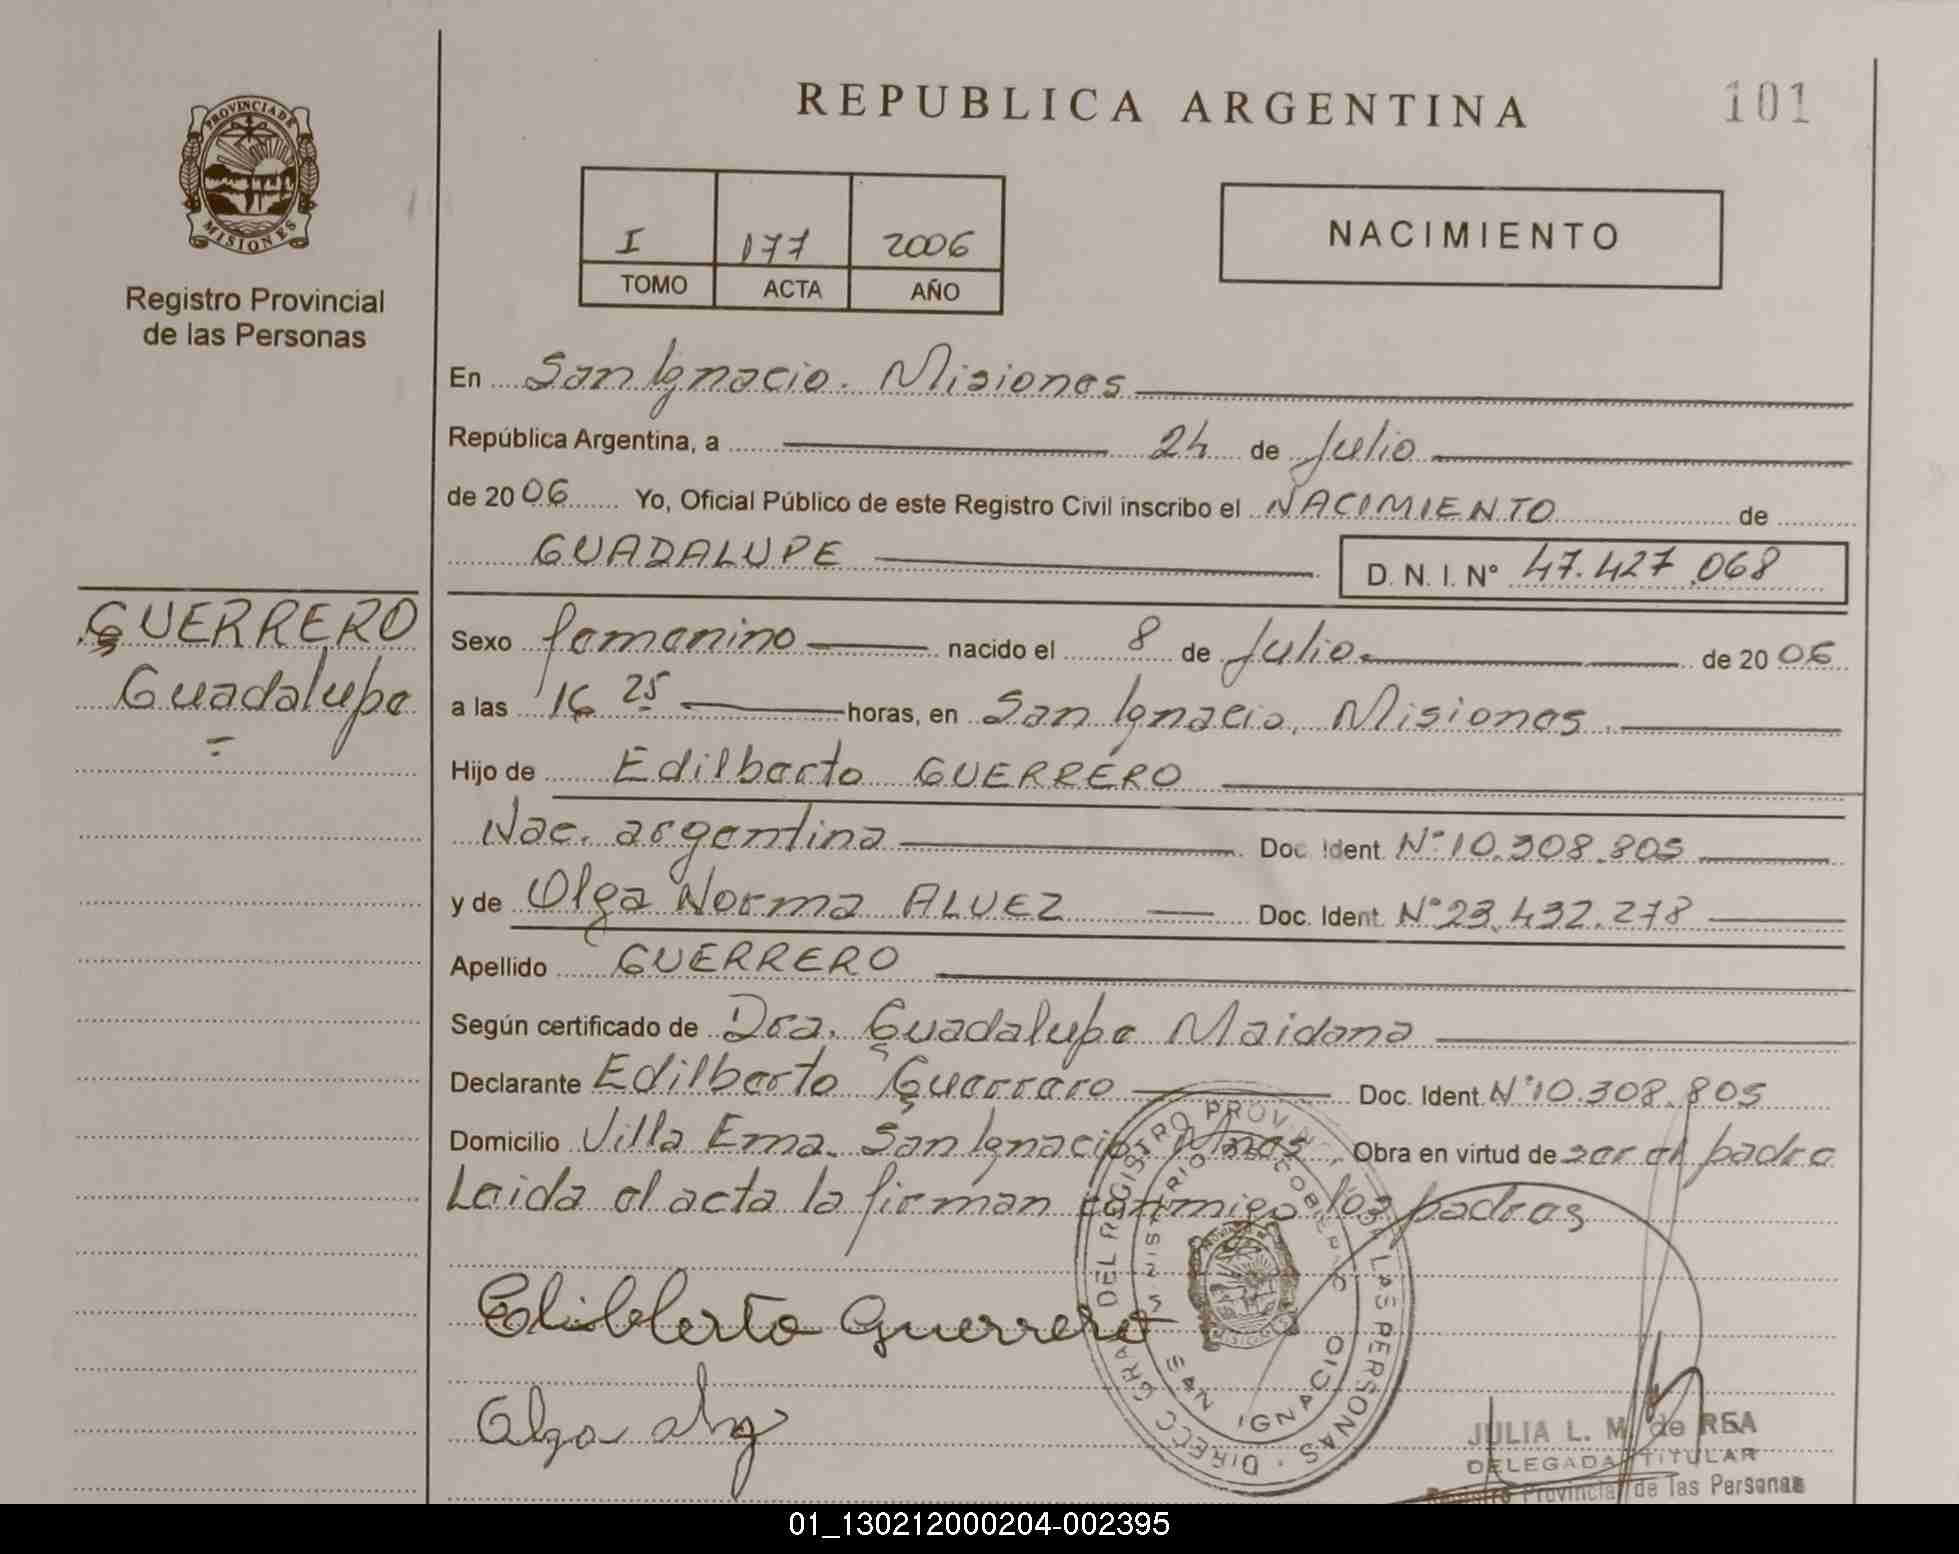 REPUBLICA ARGENTINA
101
PROVINCIA DE
MISIONES
Registro Provincial
de las Personas
I 177 2006
TOMO ACTA AÑO
NACIMIENTO
En San Ignacio. Misiones
República Argentina, a 24 de Julio
de 2006 Yo, Oficial Público de este Registro Civil inscribo el NACIMIENTO de
GUADALUPE D. N. I. N° 47.427.068
GUERRERO
Guadalupe
Sexo femenino nacido el 8 de Julio. de 2006
a las 16 25 horas, en San Ignacio, Misiones.
Hijo de Edilberto GUERRERO
Nac. argentina Doc. Ident. N° 10.308.805
y de Olga Norma ALVEZ Doc. Ident. N° 23.432.278
Apellido GUERRERO
Según certificado de Dra. Guadalupe Maidana
Declarante Edilberto Guerrero Doc. Ident. N° 10.308.805
Domicilio Villa Ema. San Ignacio, Mnes Obra en virtud de ser el padre
Leida el acta la firman conmigo los padres
Edilberto Guerrero
Olga
DIRECC GRAL DEL REGISTRO PROVINCIAL DE LAS PERSONAS
MINISTERIO DE GOBIERNO
SAN IGNACIO
JULIA L. M. de REA
DELEGADA TITULAR
Registro Provincial de las Personas
01_130212000204-002395